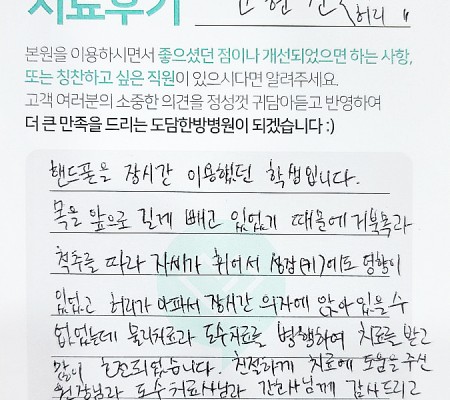 치료후기
허리 "
본원을 이용하시면서 좋으셨던 점이나 개선되었으면 하는 사항,
또는 칭찬하고 싶은 직원이 있으시다면 알려주세요.
고객 여러분의 소중한 의견을 정성껏 귀담아듣고 반영하여
더 큰 만족을 드리는 도담한방병원이 되겠습니다 :)
핸드폰을 장시간 이용했던 학생입니다.
목을 앞으로 길게 빼고 있었기 때문에 거북목과
척추를 따라 자세가 휘어서 영향이
있었고 허리가 아파서 장시간 의자에 앉아 있을 수
없었는데 물리치료와 도수치료를 병행하여 치료를 받고
많이 호전되었습니다. 친절하게 치료에 도움을 주신
원장님과 도수치료사님과 간호사님께 감사드리고